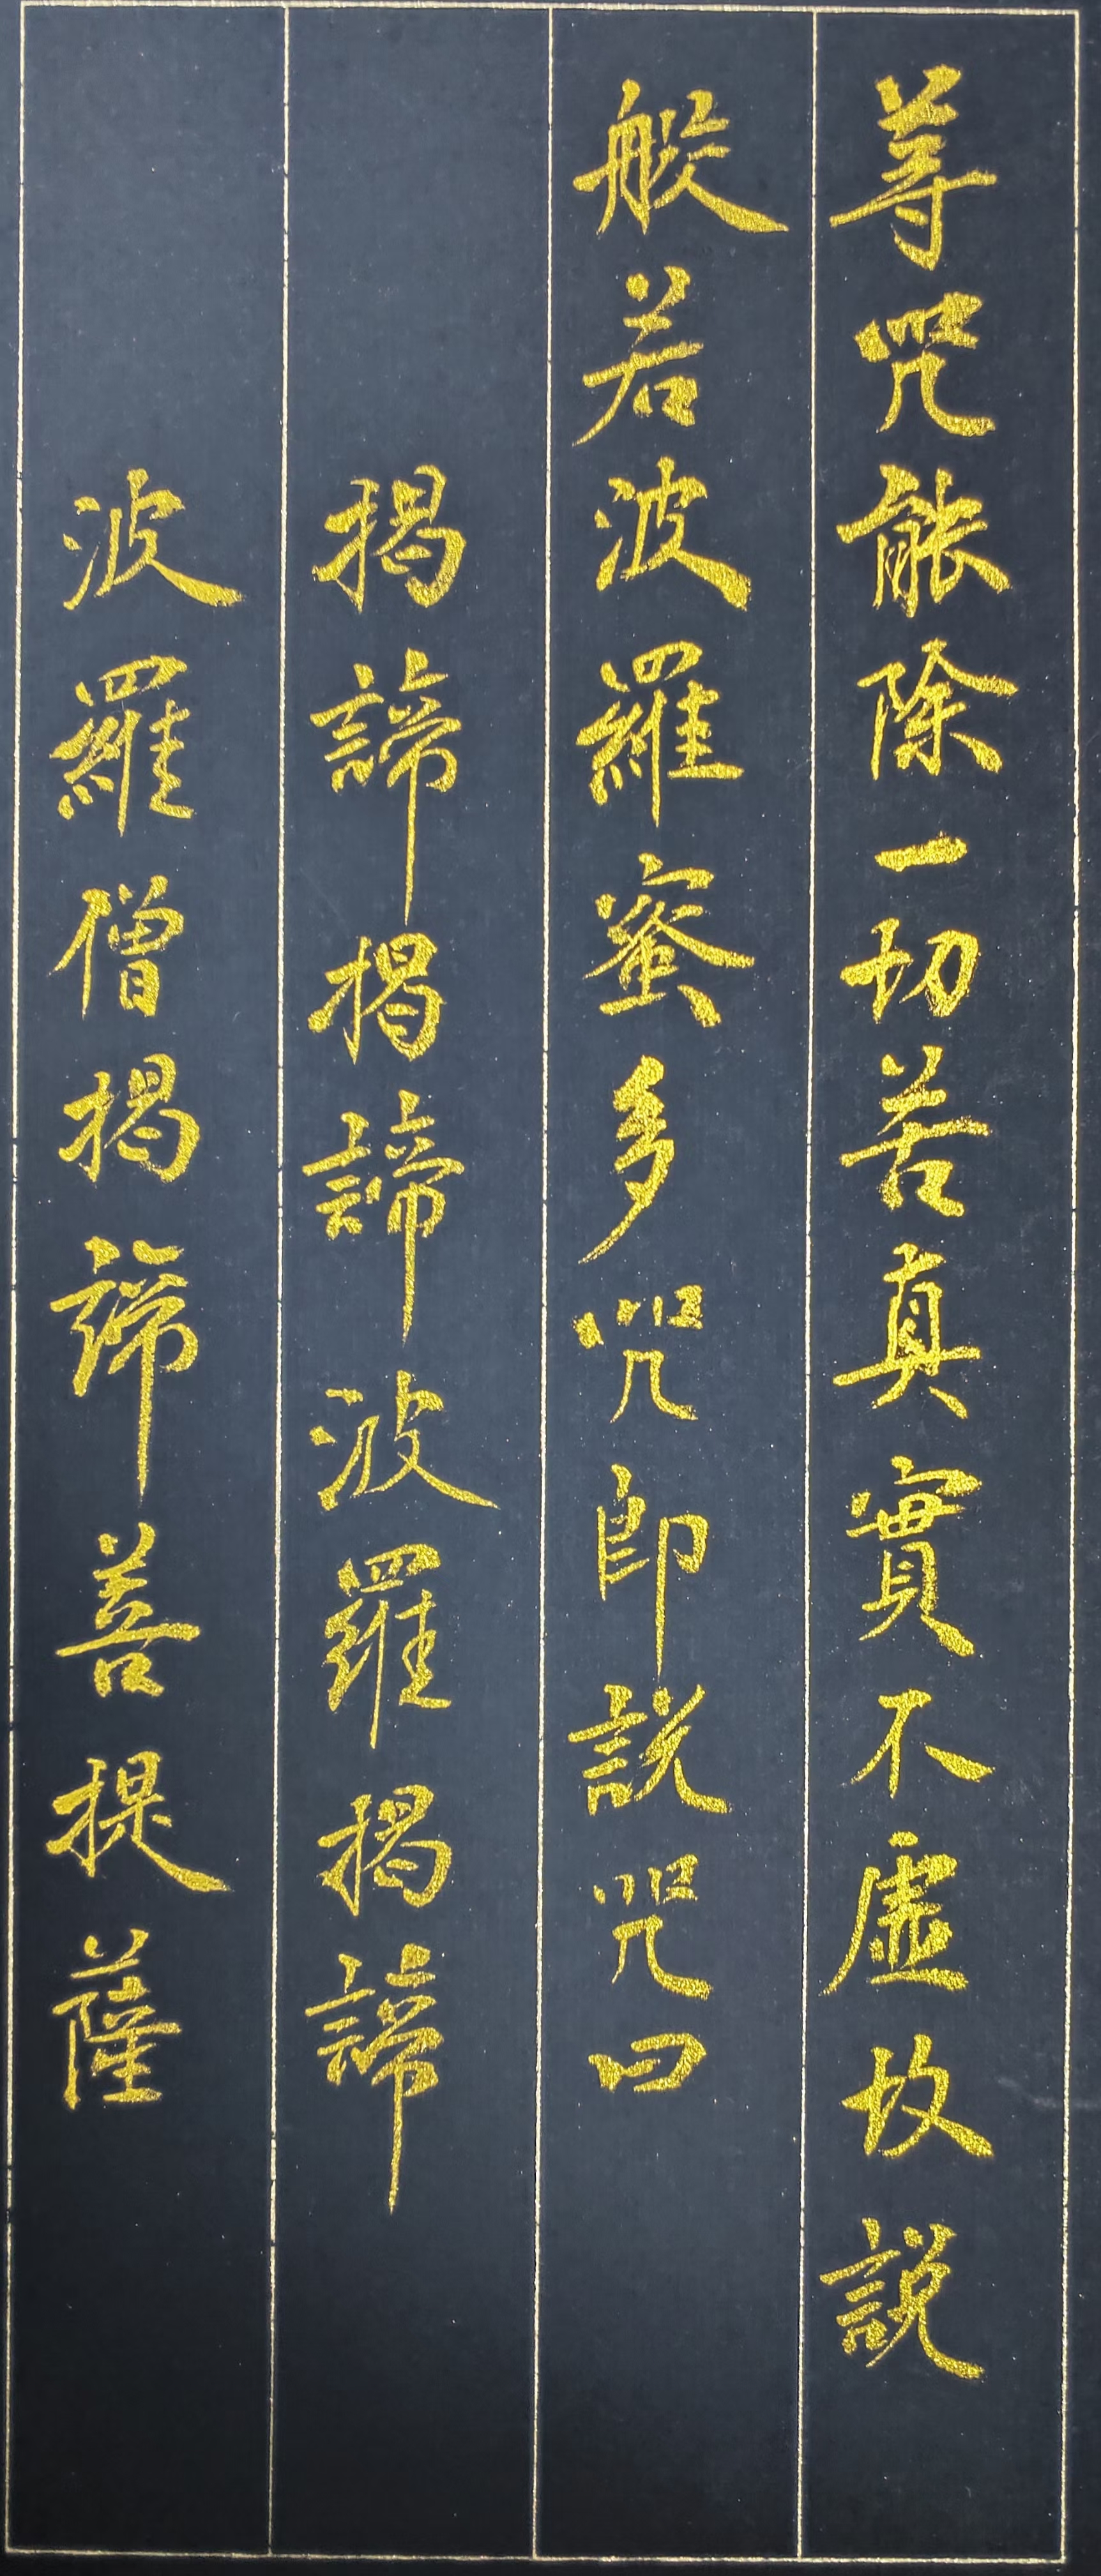 等咒能除一切苦真實不虛故說
般若波羅蜜多咒即說咒曰
揭諦揭諦波羅揭諦
波羅僧揭諦菩提薩